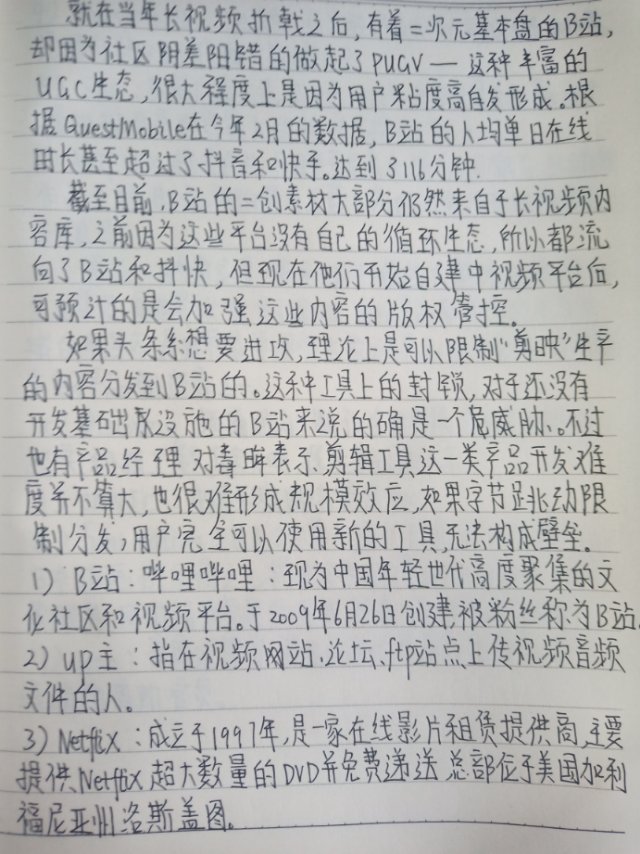 就在当年长视频折戟之后,有着二次元基本盘的B站,
却因为社区阴差阳错的做起了PUGV—这种丰富的
UGC生态,很大程度上是因为用户粘度高自发形成。根
据QuestMobile在今年2月的数据,B站的人均单日在线
时长甚至超过了抖音和快手。达到了116分钟.
截至目前,B站的二创素材大部分仍然来自于长视频内
容库,之前因为这些平台没有自己的循环生态,所以都流
向了B站和抖快,但现在他们开始自建中视频平台后,
可预计的是会加强这些内容的版权管控。
如果头条系想要进攻,理论上是可以限制“剪映”生产
的内容分发到B站的。这种工具上的封锁,对于还没有
开发基础设施的B站来说的确是一个威胁。不过
也有产品经理对毒眸表示,剪辑工具这一类产品开发难
度并不算大,也很难形成规模效应,如果字节跳动限
制分发,用户完全可以使用新的工具,无法构成壁垒。
1) B站:哔哩哔哩:现为中国年轻世代高度聚集的文
化社区和视频平台。于2009年6月26日创建被粉丝称为B站.
2) up主:指在视频网站、论坛、ftp站点上传视频音频
文件的人。
3) Netflix:成立于1997年,是一家在线影片租赁提供商,主要
提供Netflix超大数量的DVD并免费递送 总部位于美国加利
福尼亚州洛斯盖图。